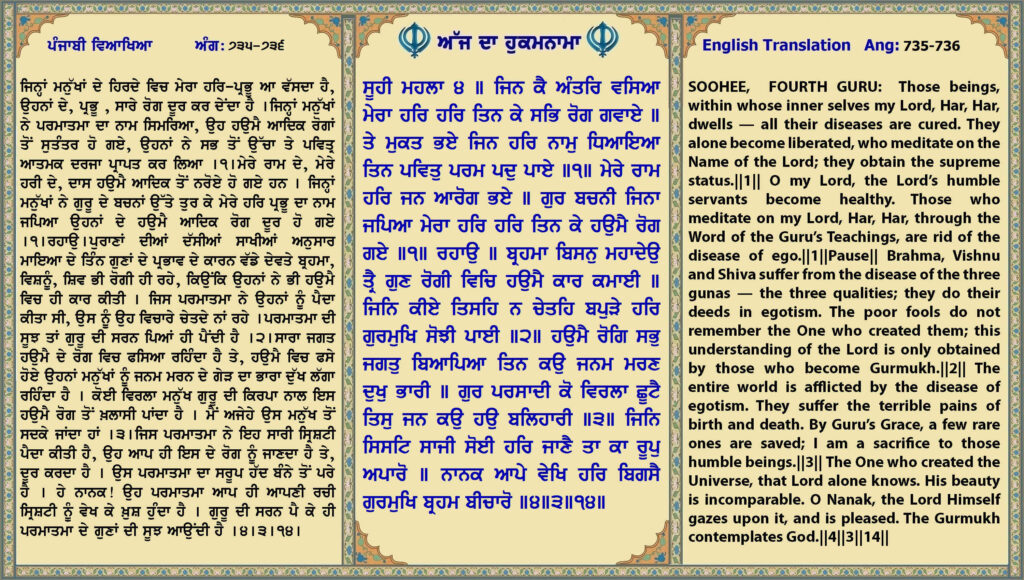 ਪੰਜਾਬੀ ਵਿਆਖਿਆ ਅੰਗ: ੭੩੫-੭੩੬
ਜਿਨ੍ਹਾਂ ਮਨੁੱਖਾਂ ਦੇ ਹਿਰਦੇ ਵਿਚ ਮੇਰਾ ਹਰਿ-ਪ੍ਰਭੂ ਆ ਵੱਸਦਾ ਹੈ,
ਉਹਨਾਂ ਦੇ, ਪ੍ਰਭੂ , ਸਾਰੇ ਰੋਗ ਦੂਰ ਕਰ ਦੇਂਦਾ ਹੈ ।ਜਿਨ੍ਹਾਂ ਮਨੁੱਖਾਂ
ਨੇ ਪਰਮਾਤਮਾ ਦਾ ਨਾਮ ਸਿਮਰਿਆ, ਉਹ ਹਉਮੈ ਆਦਿਕ ਰੋਗਾਂ
ਤੋਂ ਸੁਤੰਤਰ ਹੋ ਗਏ, ਉਹਨਾਂ ਨੇ ਸਭ ਤੋਂ ਉੱਚਾ ਤੇ ਪਵਿਤ੍ਰ
ਆਤਮਕ ਦਰਜਾ ਪ੍ਰਾਪਤ ਕਰ ਲਿਆ ।੧।ਮੇਰੇ ਰਾਮ ਦੇ, ਮੇਰੇ
ਹਰੀ ਦੇ, ਦਾਸ ਹਉਮੈ ਆਦਿਕ ਤੋਂ ਨਰੋਏ ਹੋ ਗਏ ਹਨ । ਜਿਨ੍ਹਾਂ
ਮਨੁੱਖਾਂ ਨੇ ਗੁਰੂ ਦੇ ਬਚਨਾਂ ਉੱਤੇ ਤੁਰ ਕੇ ਮੇਰੇ ਹਰਿ ਪ੍ਰਭੂ ਦਾ ਨਾਮ
ਜਪਿਆ ਉਹਨਾਂ ਦੇ ਹਉਮੈ ਆਦਿਕ ਰੋਗ ਦੂਰ ਹੋ ਗਏ
।੧।ਰਹਾਉ।ਪੁਰਾਣਾਂ ਦੀਆਂ ਦੱਸੀਆਂ ਸਾਖੀਆਂ ਅਨੁਸਾਰ
ਮਾਇਆ ਦੇ ਤਿੰਨ ਗੁਣਾਂ ਦੇ ਪ੍ਰਭਾਵ ਦੇ ਕਾਰਨ ਵੱਡੇ ਦੇਵਤੇ ਬ੍ਰਹਮਾ,
ਵਿਸ਼ਨੂੰ, ਸ਼ਿਵ ਭੀ ਰੋਗੀ ਹੀ ਰਹੇ, ਕਿਉਂਕਿ ਉਹਨਾਂ ਨੇ ਭੀ ਹਉਮੈ
ਵਿਚ ਹੀ ਕਾਰ ਕੀਤੀ । ਜਿਸ ਪਰਮਾਤਮਾ ਨੇ ਉਹਨਾਂ ਨੂੰ ਪੈਦਾ
ਕੀਤਾ ਸੀ, ਉਸ ਨੂੰ ਉਹ ਵਿਚਾਰੇ ਚੇਤਦੇ ਨਾਂ ਰਹੇ ।ਪਰਮਾਤਮਾ ਦੀ
ਸੂਝ ਤਾਂ ਗੁਰੂ ਦੀ ਸਰਨ ਪਿਆਂ ਹੀ ਪੈਂਦੀ ਹੈ ।੨।ਸਾਰਾ ਜਗਤ
ਹਉਮੈ ਦੇ ਰੋਗ ਵਿਚ ਫਸਿਆ ਰਹਿੰਦਾ ਹੈ ਤੇ, ਹਉਮੈ ਵਿਚ ਫਸੇ
ਹੋਏ ਉਹਨਾਂ ਮਨੁੱਖਾਂ ਨੂੰ ਜਨਮ ਮਰਨ ਦੇ ਗੇੜ ਦਾ ਭਾਰਾ ਦੁੱਖ ਲੱਗਾ
ਰਹਿੰਦਾ ਹੈ । ਕੋਈ ਵਿਰਲਾ ਮਨੁੱਖ ਗੁਰੂ ਦੀ ਕਿਰਪਾ ਨਾਲ ਇਸ
ਹਉਮੈ ਰੋਗ ਤੋਂ ਖ਼ਲਾਸੀ ਪਾਂਦਾ ਹੈ । ਮੈਂ ਅਜੇਹੇ ਉਸ ਮਨੁੱਖ ਤੋਂ
ਸਦਕੇ ਜਾਂਦਾ ਹਾਂ ।੩।ਜਿਸ ਪਰਮਾਤਮਾ ਨੇ ਇਹ ਸਾਰੀ ਸ੍ਰਿਸ਼ਟੀ
ਪੈਦਾ ਕੀਤੀ ਹੈ, ਉਹ ਆਪ ਹੀ ਇਸ ਦੇ ਰੋਗ ਨੂੰ ਜਾਣਦਾ ਹੈ ਤੇ,
ਦੂਰ ਕਰਦਾ ਹੈ । ਉਸ ਪਰਮਾਤਮਾ ਦਾ ਸਰੂਪ ਹੱਦ ਬੰਨੇ ਤੋਂ ਪਰੇ
ਹੈ । ਹੇ ਨਾਨਕ! ਉਹ ਪਰਮਾਤਮਾ ਆਪ ਹੀ ਆਪਣੀ ਰਚੀ
ਸ੍ਰਿਸ਼ਟੀ ਨੂੰ ਵੇਖ ਕੇ ਖ਼ੁਸ਼ ਹੁੰਦਾ ਹੈ । ਗੁਰੂ ਦੀ ਸਰਨ ਪੈ ਕੇ ਹੀ
ਪਰਮਾਤਮਾ ਦੇ ਗੁਣਾਂ ਦੀ ਸੂਝ ਆਉਂਦੀ ਹੈ ।੪।੩।੧੪।
ਅੱਜ ਦਾ ਹੁਕਮਨਾਮਾ
ਸੂਹੀ ਮਹਲਾ ੪ ॥ ਜਿਨ ਕੈ ਅੰਤਰਿ ਵਸਿਆ
ਮੇਰਾ ਹਰਿ ਹਰਿ ਤਿਨ ਕੇ ਸਭਿ ਰੋਗ ਗਵਾਏ ॥
ਤੇ ਮੁਕਤ ਭਏ ਜਿਨ ਹਰਿ ਨਾਮੁ ਧਿਆਇਆ
ਤਿਨ ਪਵਿਤੁ ਪਰਮ ਪਦੁ ਪਾਏ ॥੧॥ ਮੇਰੇ ਰਾਮ
ਹਰਿ ਜਨ ਆਰੋਗ ਭਏ ॥ ਗੁਰ ਬਚਨੀ ਜਿਨਾ
ਜਪਿਆ ਮੇਰਾ ਹਰਿ ਹਰਿ ਤਿਨ ਕੇ ਹਉਮੈ ਰੋਗ
ਗਏ ॥੧॥ ਰਹਾਉ ॥ ਬ੍ਰਹਮਾ ਬਿਸਨੁ ਮਹਾਦੇਉ
ਤ੍ਰੈ ਗੁਣ ਰੋਗੀ ਵਿਚਿ ਹਉਮੈ ਕਾਰ ਕਮਾਈ ॥
ਜਿਨਿ ਕੀਏ ਤਿਸਹਿ ਨ ਚੇਤਹਿ ਬਪੁੜੇ ਹਰਿ
ਗੁਰਮੁਖਿ ਸੋਝੀ ਪਾਈ ॥੨॥ ਹਉਮੈ ਰੋਗਿ ਸਭੁ
ਜਗਤੁ ਬਿਆਪਿਆ ਤਿਨ ਕਉ ਜਨਮ ਮਰਣ
ਦੁਖੁ ਭਾਰੀ ॥ ਗੁਰ ਪਰਸਾਦੀ ਕੋ ਵਿਰਲਾ ਛੂਟੈ
ਤਿਸੁ ਜਨ ਕਉ ਹਉ ਬਲਿਹਾਰੀ ॥੩॥ ਜਿਨਿ
ਸਿਸਟਿ ਸਾਜੀ ਸੋਈ ਹਰਿ ਜਾਣੈ ਤਾ ਕਾ ਰੂਪੁ
ਅਪਾਰੋ ॥ ਨਾਨਕ ਆਪੇ ਵੇਖਿ ਹਰਿ ਬਿਗਸੈ
ਗੁਰਮੁਖਿ ਬ੍ਰਹਮ ਬੀਚਾਰੋ ॥੪॥੩॥੧੪॥
English Translation Ang: 735-736
SOOHEE, FOURTH GURU: Those beings,
within whose inner selves my Lord, Har, Har,
dwells — all their diseases are cured. They
alone become liberated, who meditate on the
Name of the Lord; they obtain the supreme
status.||1|| O my Lord, the Lord’s humble
servants become healthy. Those who
meditate on my Lord, Har, Har, through the
Word of the Guru’s Teachings, are rid of the
disease of ego.||1||Pause|| Brahma, Vishnu
and Shiva suffer from the disease of the three
gunas — the three qualities; they do their
deeds in egotism. The poor fools do not
remember the One who created them; this
understanding of the Lord is only obtained
by those who become Gurmukh.||2|| The
entire world is afflicted by the disease of
egotism. They suffer the terrible pains of
birth and death. By Guru’s Grace, a few rare
ones are saved; I am a sacrifice to those
humble beings.||3|| The One who created the
Universe, that Lord alone knows. His beauty
is incomparable. O Nanak, the Lord Himself
gazes upon it, and is pleased. The Gurmukh
contemplates God.||4||3||14||